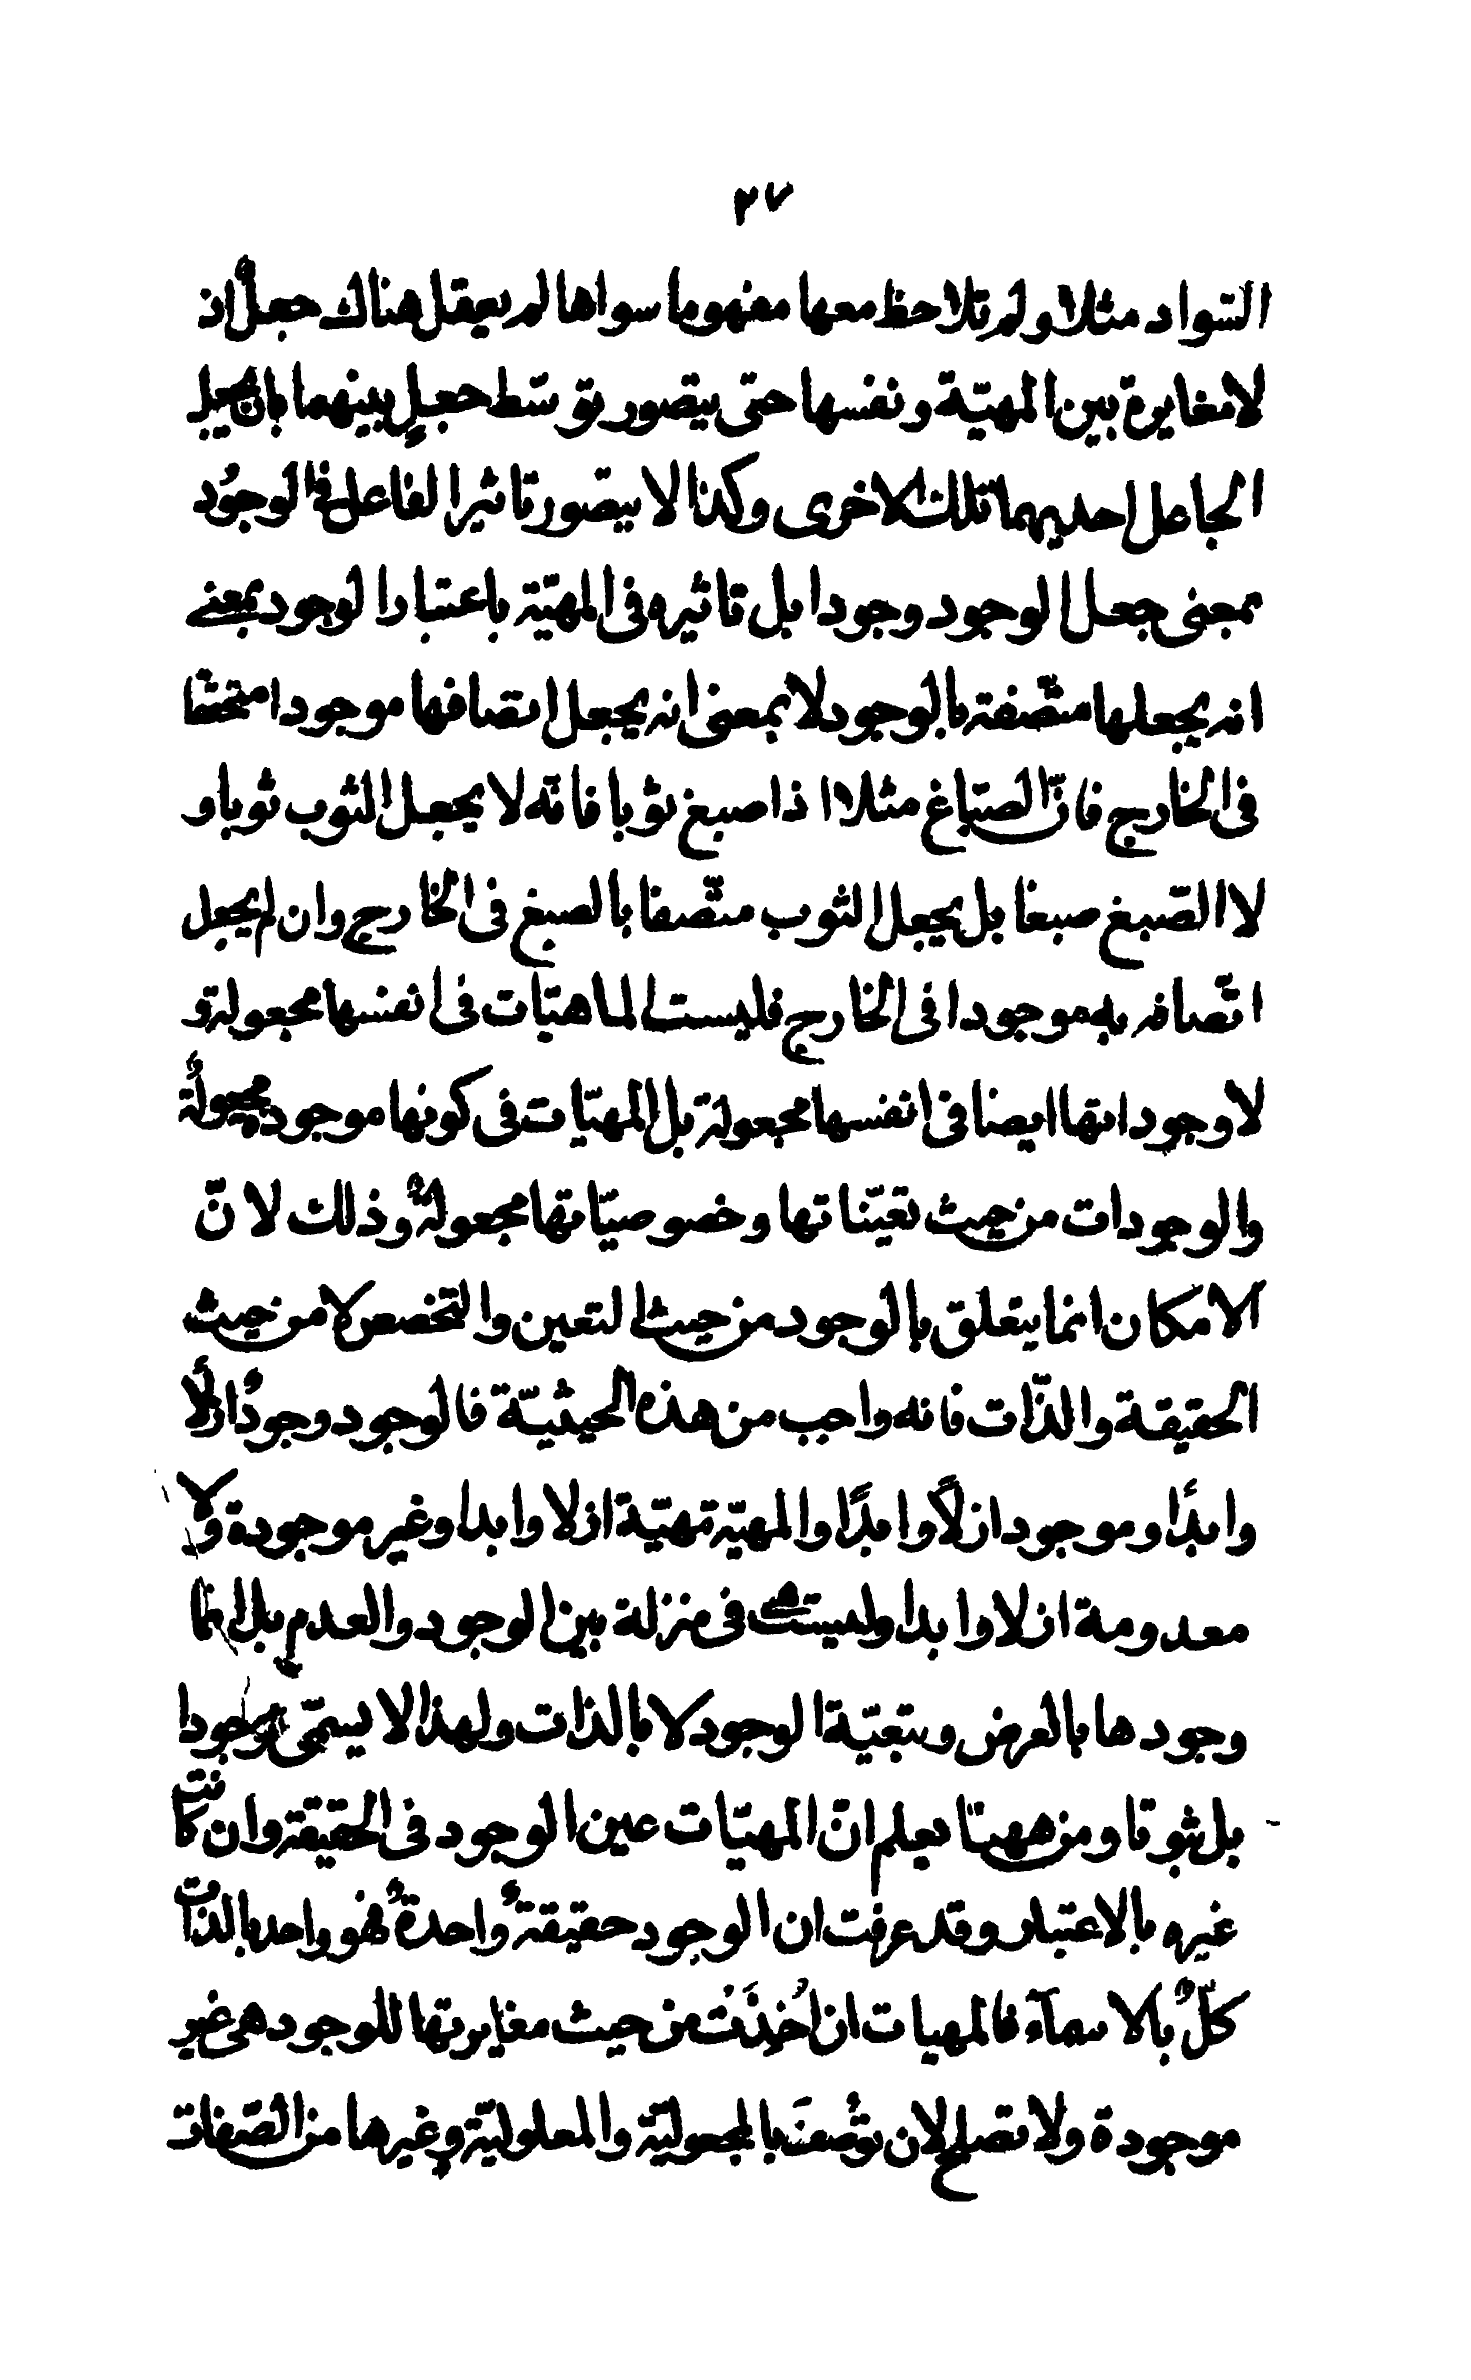 ٢٧
السّواد مثلا ولم تلاحظ معها مفهوما سواها لم يعقل هناك جعلٌ اذ
لا مغايرة بين المهيّة ونفسها حتى يتصور توسّط جعلٍ بينهما بان يجعل
الجاعل احديهما تلك الاخرى وكذا لا يتصور تاثير الفاعل فى الوجود
بمعنى جعل الوجود وجودا بل تاثيره فى المهيّة باعتبار الوجود بمعنى
انه يجعلها متّصفة بالوجود لا بمعنى انه يجعل اتصافها موجودا متحققا
فى الخارج فانّ الصّباغ مثلا اذا صبغ ثوبا فانّه لا يجعل الثوب ثوبا و
لا الصّبغ صبغا بل يجعل الثوب متّصفا بالصبغ فى الخارج وان لم يجعل
اتّصافه به موجودا فى الخارج فليست الماهيّات فى انفسها مجعولة و
لا وجوداتها ايضا فى انفسها مجعولة بل المهيّات فى كونها موجودة مجعولةٌ
والوجودات من حيث تعيّناتها وخصوصيّاتها مجعولةٌ وذلك لانّ
الامكان انما يتعلق بالوجود من حيث التعين والتخصص لا من حيث
الحقيقة والذّات فانه واجب من هذه الحيثيّة فالوجود وجودٌ ازلًا
وابدًا وموجود ازلًا وابدًا والمهيّة مهيّة ازلا وابدا وغير موجودة ولا
معدومة ازلا وابدا وليست فى منزلة بين الوجود والعدم بل انما
وجودها بالعرض وبتبعيّة الوجود لا بالذات ولهذا لا يسمّى وجودا
بل ثبوتا ومن ههنا يعلم انّ المهيّات عين الوجود فى الحقيقة وان كانت
غيره بالاعتبار وقد عرفت ان الوجود حقيقةٌ واحدةٌ فهو واحد بالذات
كلٌّ بالاسمآء فالمهيات ان اُخذَتْ من حيث مغايرتها للوجود هى غير
موجودة ولا تصلح لان توُصفَ بالمجعوليّة والمعلوليّة وغيرها من الصّفات